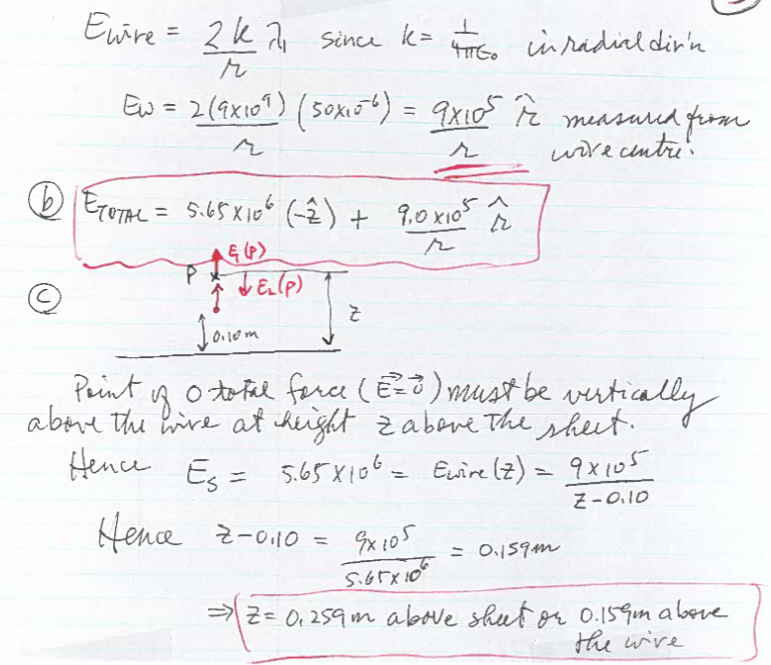 Ewire = 2k/r λ₁ since k = 1/4πε₀ in radial dir'n
Ew = 2(9x10⁹)/r (50x10⁻⁶) = 9x10⁵/r r̂ measured from
wire centre.
(b) ETOTAL = 5.65 x 10⁶ (-ẑ) + 9.0 x10⁵/r r̂
E₁(P)
P
E₂(P)
(c)
z
0.10m
Point of 0 total force (E⃗=0⃗) must be vertically
above the wire at height z above the sheet.
Hence Es = 5.65 x 10⁶ = Ewire(z) = 9 x 10⁵/z-0.10
Hence z-0.10 = 9x10⁵/5.65 x 10⁶ = 0.159m
⇒ z = 0.259m above sheet or 0.159m above
the wire